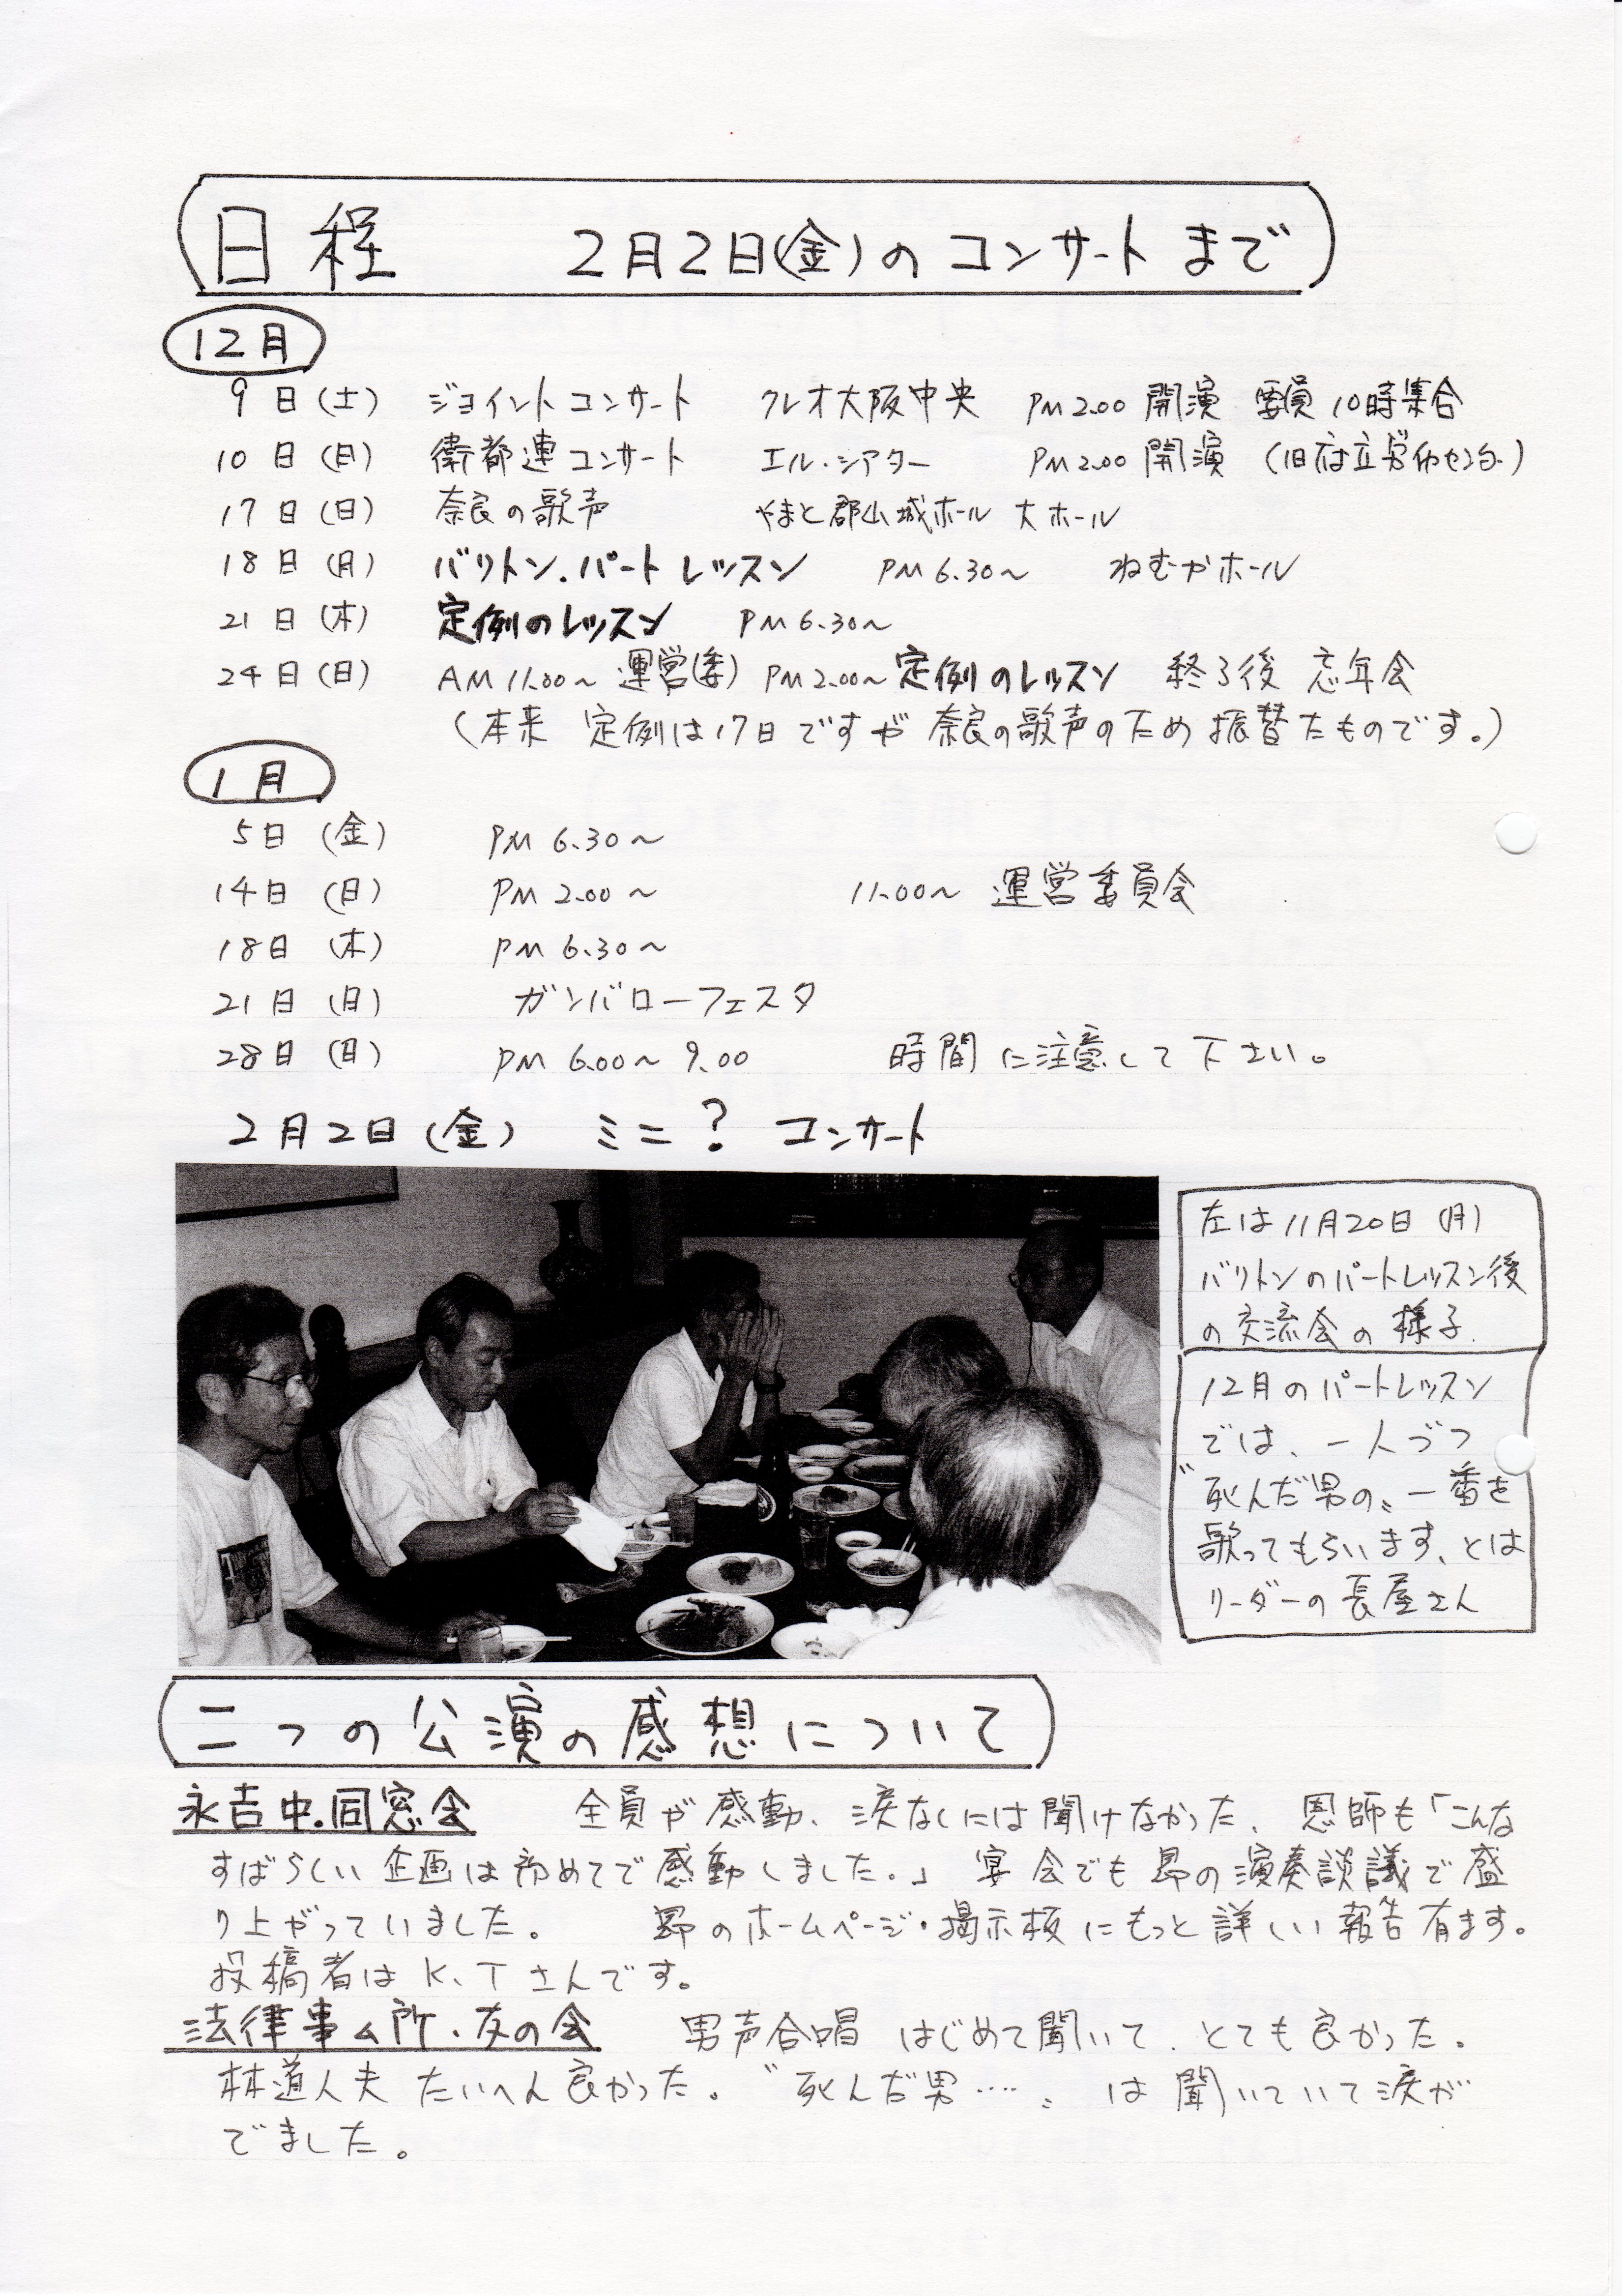 日程 2月2日(金)のコンサートまで
12月
9日(土) ジョイントコンサート クレオ大阪中央 PM2.00開演 要員10時集合
10日(月) 衛都連コンサート エル・シアター PM2.00開演 (旧府立労働センター)
17日(日) 奈良の歌声 やまと郡山城ホール 大ホール
18日(月) バリトン.パートレッスン PM6.30~ ねむかホール
21日(木) 定例のレッスン PM6.30~
24日(日) AM11.00~運営(委) PM2.00~定例のレッスン 終了後 忘年会
(本来 定例は17日ですが奈良の歌声のため振替たものです。)
1月
5日(金) PM6.30~
14日(日) PM2.00~ 11.00~ 運営委員会
18日(木) PM6.30~
21日(日) ガンバローフェスタ
28日(日) PM6.00~9.00 時間に注意して下さい。
2月2日(金) ミニ?コンサート
左は11月20日(月)
バリトンのパートレッスン後
の交流会の様子.
12月のパートレッスン
では、一人づつ
〝死んだ男の〟一番を
歌ってもらいます、とは
リーダーの長屋さん
二つの公演の感想について
永吉中.同窓会 全員が感動、涙なしには聞けなかった、恩師も「こんな
すばらしい企画は初めてで感動しました。」宴会でも昴の演奏談議で盛
り上がっていました。 昴のホームページ・掲示板にもっと詳しい報告有ます。
投稿者はK、Tさんです。
法律事ム所・友の会 男声合唱 はじめて聞いて、とても良かった。
林道人夫 たいへん良かった。〝死んだ男……〟は聞いていて涙が
でました。